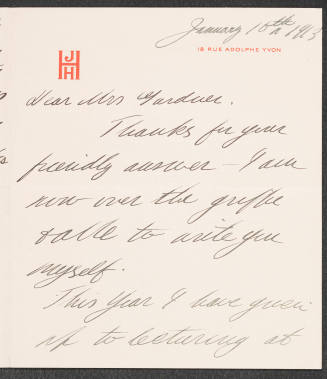 January 10th 1913
18 RUE ADOLPHE YVON
JHH
Dear Mrs Gardner.
Thanks for your
friendly answer – I am
now over the grippe
& able to write you
myself.
This Year I have given
up to lecturing at